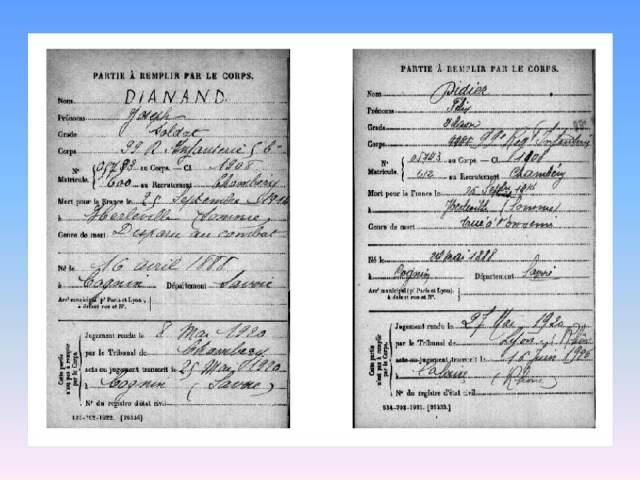 PARTIE À REMPLIR PAR LE CORPS.
Nom DIANAND.
Prénoms Joseph
Grade Soldat
Corps 99 R. Infanterie
N° 05793 au Corps. — Cl. 1908
Matricule. 600 au Recrutement Chambéry
Mort pour la France le 25 Septembre 1914
à Herleville (Somme)
Genre de mort Disparu au combat
Né le 16 avril 1888
à Cognin Département Savoie
Arrt municipal (pr Paris et Lyon), à défaut rue et N°.
Cette partie n'est pas à remplir par le Corps.
Jugement rendu le 8 Mai 1920
par le Tribunal de Chambéry
acte ou jugement transcrit le 25 Mai 1920
à Cognin (Savoie)
N° du registre d'état civil
PARTIE À REMPLIR PAR LE CORPS.
Nom Didier
Prénoms
Grade
Corps 99e Regt Infanterie
N° au Corps. — Cl. 1908
Matricule. 612 au Recrutement Chambéry
Mort pour la France le
à Herleville (Somme)
Genre de mort tué à l'ennemi
Né le 24 mai 1888
à Cognin Département Savoie
Arrt municipal (pr Paris et Lyon), à défaut rue et N°.
Cette partie n'est pas à remplir par le Corps.
Jugement rendu le 27 Mai 1920
par le Tribunal de Lyon (Rhône)
acte ou jugement transcrit le 16 juin 1920
à (Rhône)
N° du registre d'état civil